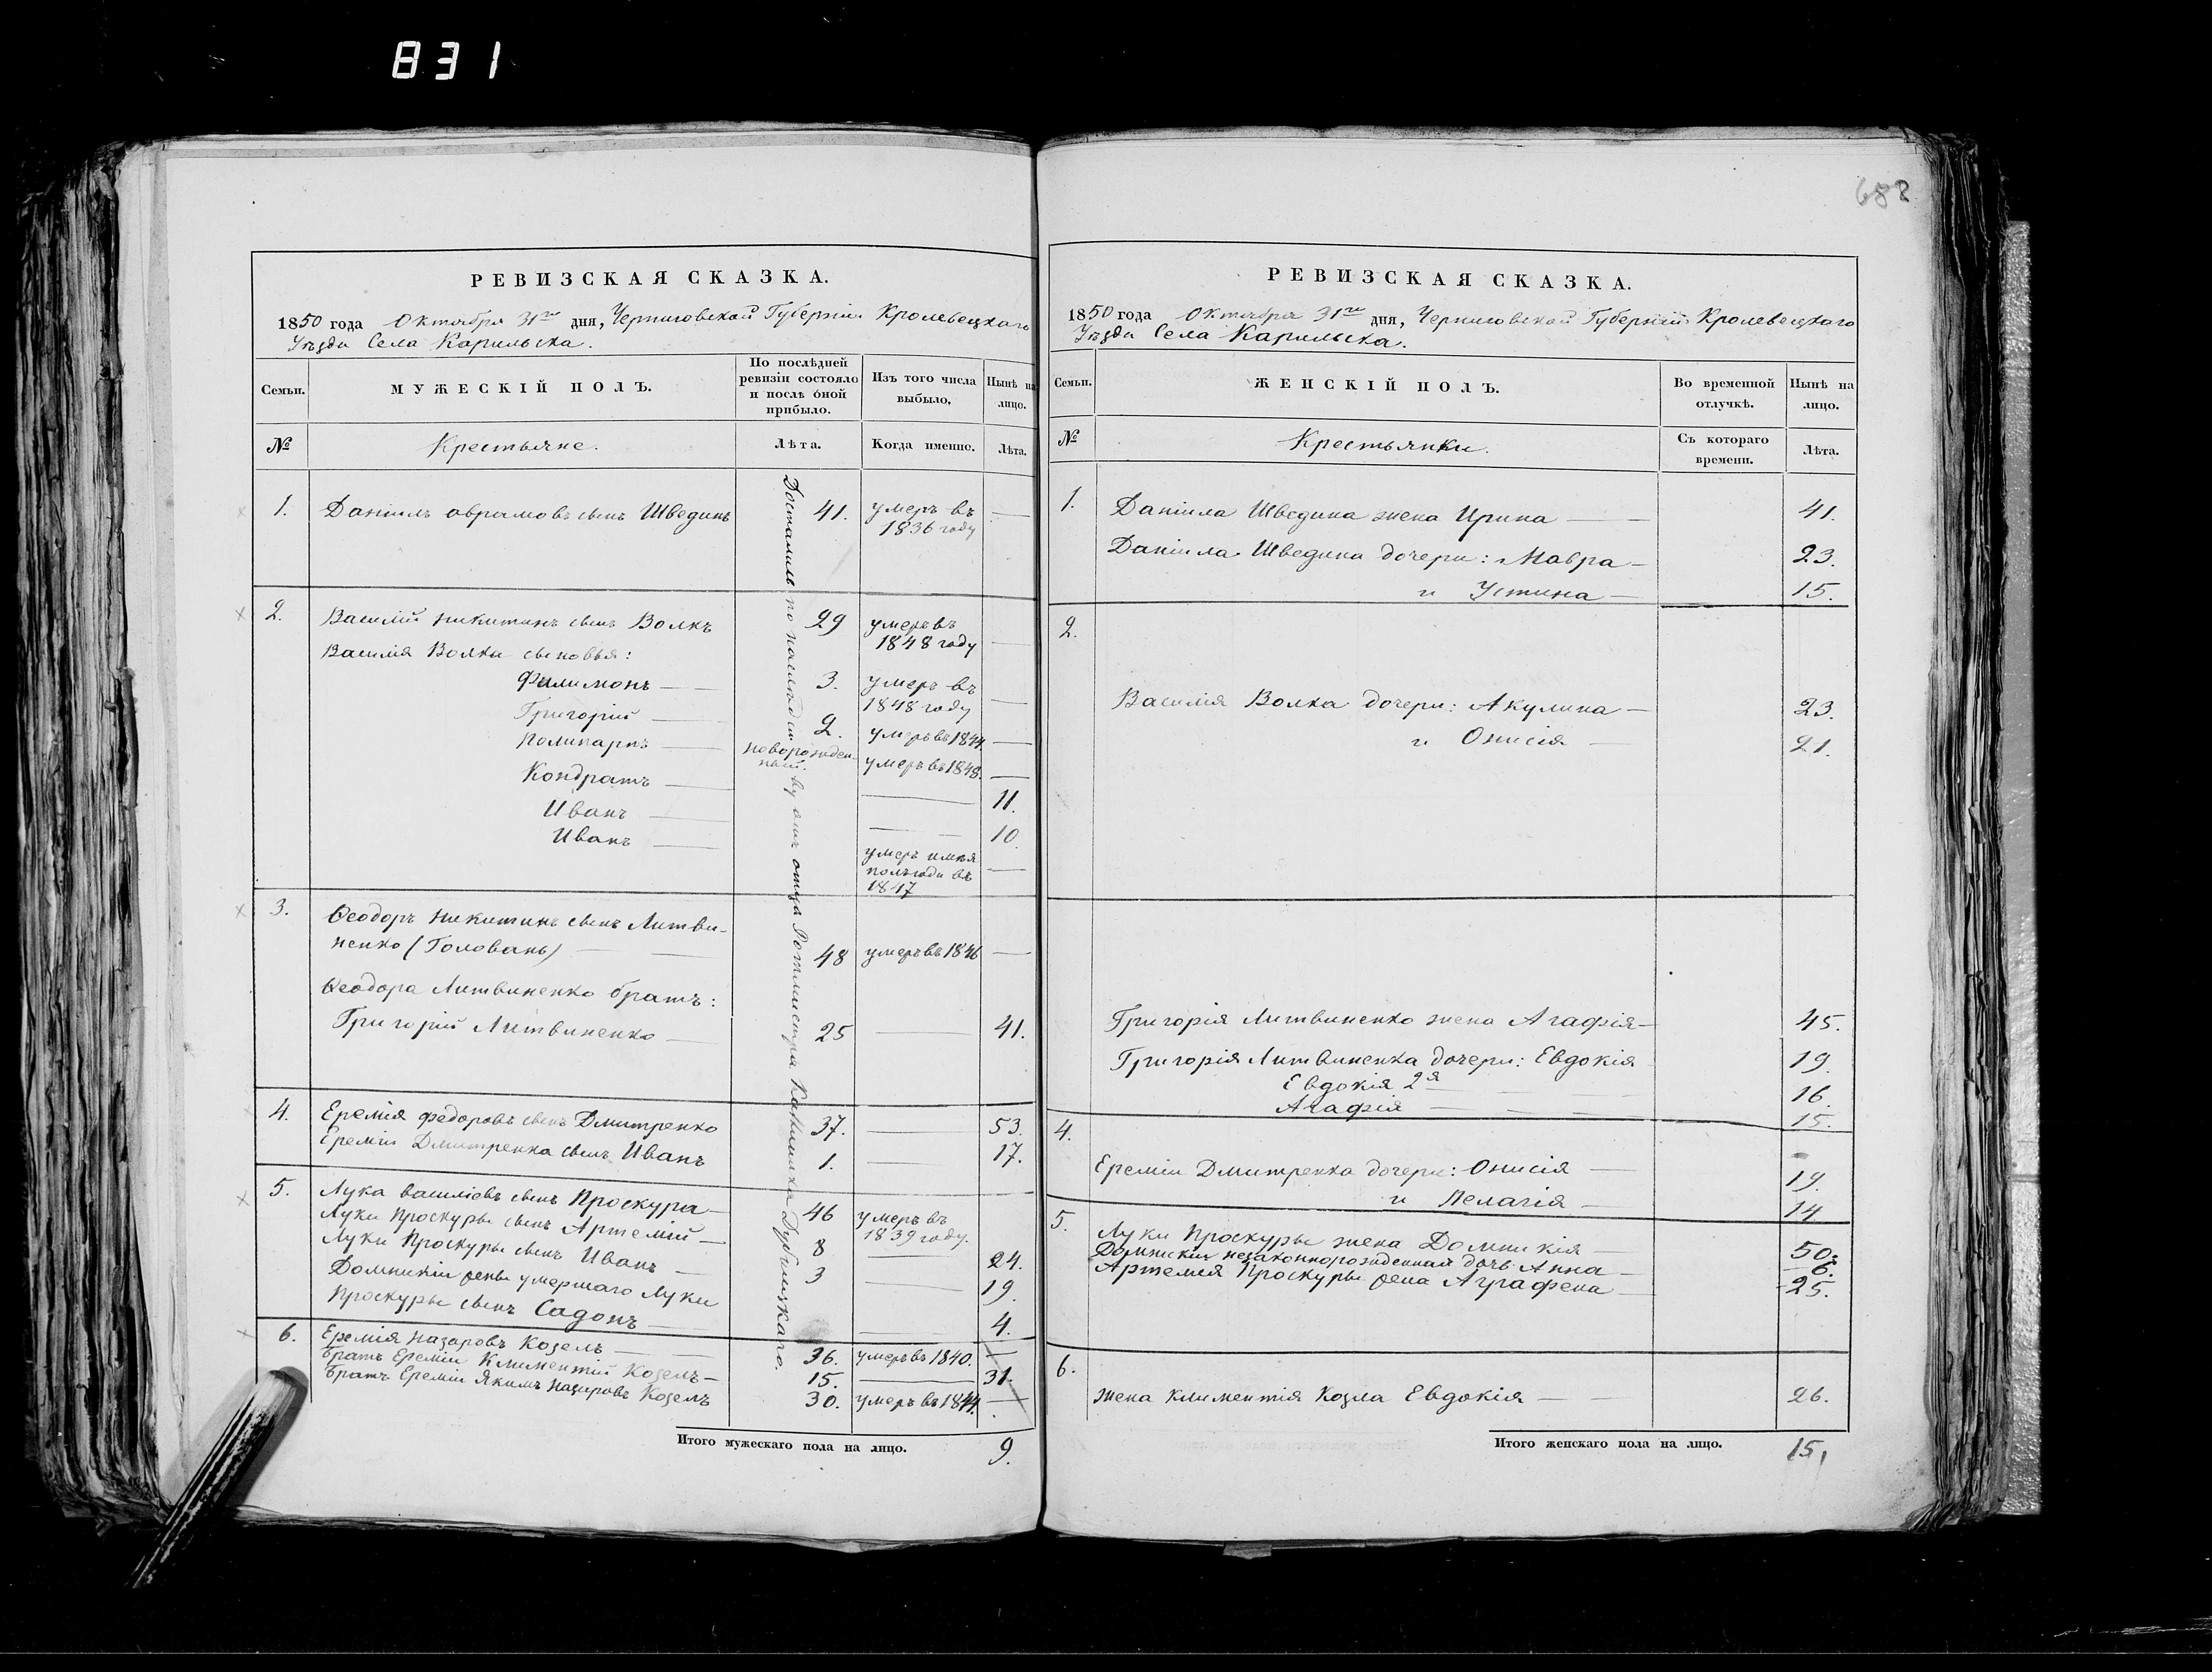 831
688
РЕВИЗСКАЯ СКАЗКА.
1850 года Октября 31го дня, Черниговской Губерніи Кролевецкаго
Уѣзда Села Карильска.
Семьи.
МУЖЕСКІЙ ПОЛЪ.
По послѣдней
ревизіи состояло
и послѣ оной
прибыло.
Изъ того числа
выбыло.
Нынѣ на
лицо.
№
Крестьяне.
Лѣта.
Когда именно.
Лѣта.
Достались по наслѣдію отъ отца Ротмистра
1. Даніилъ аврамовъ сынъ Швединъ 41. умеръ въ
1836 году
2. Василій никитинъ сынъ Волкъ 29 умеръ въ
1848 году
Василія Волка сыновья:
Филимонъ 3. умеръ въ
1848 году
Григорій 2. умеръ въ 1844.
Поликарпъ новорожден-
ный. умеръ въ 1848.
Кондратъ 11.
Иванъ 10.
Иванъ умеръ имѣя
полъгода въ
1847
3. Ѳеодоръ никитинъ сынъ Литви-
ненко (Головань) 48 умеръ въ 1846
Ѳеодора Литвиненко братъ:
Григорій Литвиненко 25 41.
4. Еремія федоровъ сынъ Дмитренко 37. 53.
Ереміи Дмитренка сынъ Иванъ 1. 17.
5. Лука василіевъ сынъ Проскура 46 умеръ въ
1839 году.
Луки Проскуры сынъ Артемій 8 24.
Луки Проскуры сынъ Иванъ 3 19.
Домникіи жены умершаго Луки
Проскуры сынъ Садонъ 4.
6. Еремія назаровъ Козелъ 36. умеръ въ 1840.
Братъ Ереміи Климентій Козелъ 15. 31.
Братъ Ереміи Якимъ назаровъ Козелъ 30. умеръ въ 1844.
Итого мужескаго пола на лицо. 9.
РЕВИЗСКАЯ СКАЗКА.
1850 года Октября 31го дня, Черниговской Губерніи Кролевецкаго
Уѣзда Села Карильска.
Семьи.
ЖЕНСКІЙ ПОЛЪ.
Во временной
отлучкѣ.
Нынѣ на
лицо.
№
Крестьянки.
Съ котораго
времени.
Лѣта.
1. Даніила Шведина жена Ирина 41.
Даніила Шведина дочери: Мавра 23.
и Устина 15.
2.
Василія Волка дочери: Акулина 23.
и Онисія 21.
Григорія Литвиненко жена Агафія 45.
Григорія Литвиненка дочери: Евдокія 19.
Евдокія 2я 16.
Агафія 15.
4.
Ереміи Дмитренка дочери: Онисія 19.
и Пелагія 14.
5. Луки Проскуры жена Домникія 50.
Домникіи незаконнорожденная дочь Анна 6.
Артемія Проскуры жена Аграфена 25.
6.
жена климентія Козла Евдокія 26.
Итого женскаго пола на лицо. 15,